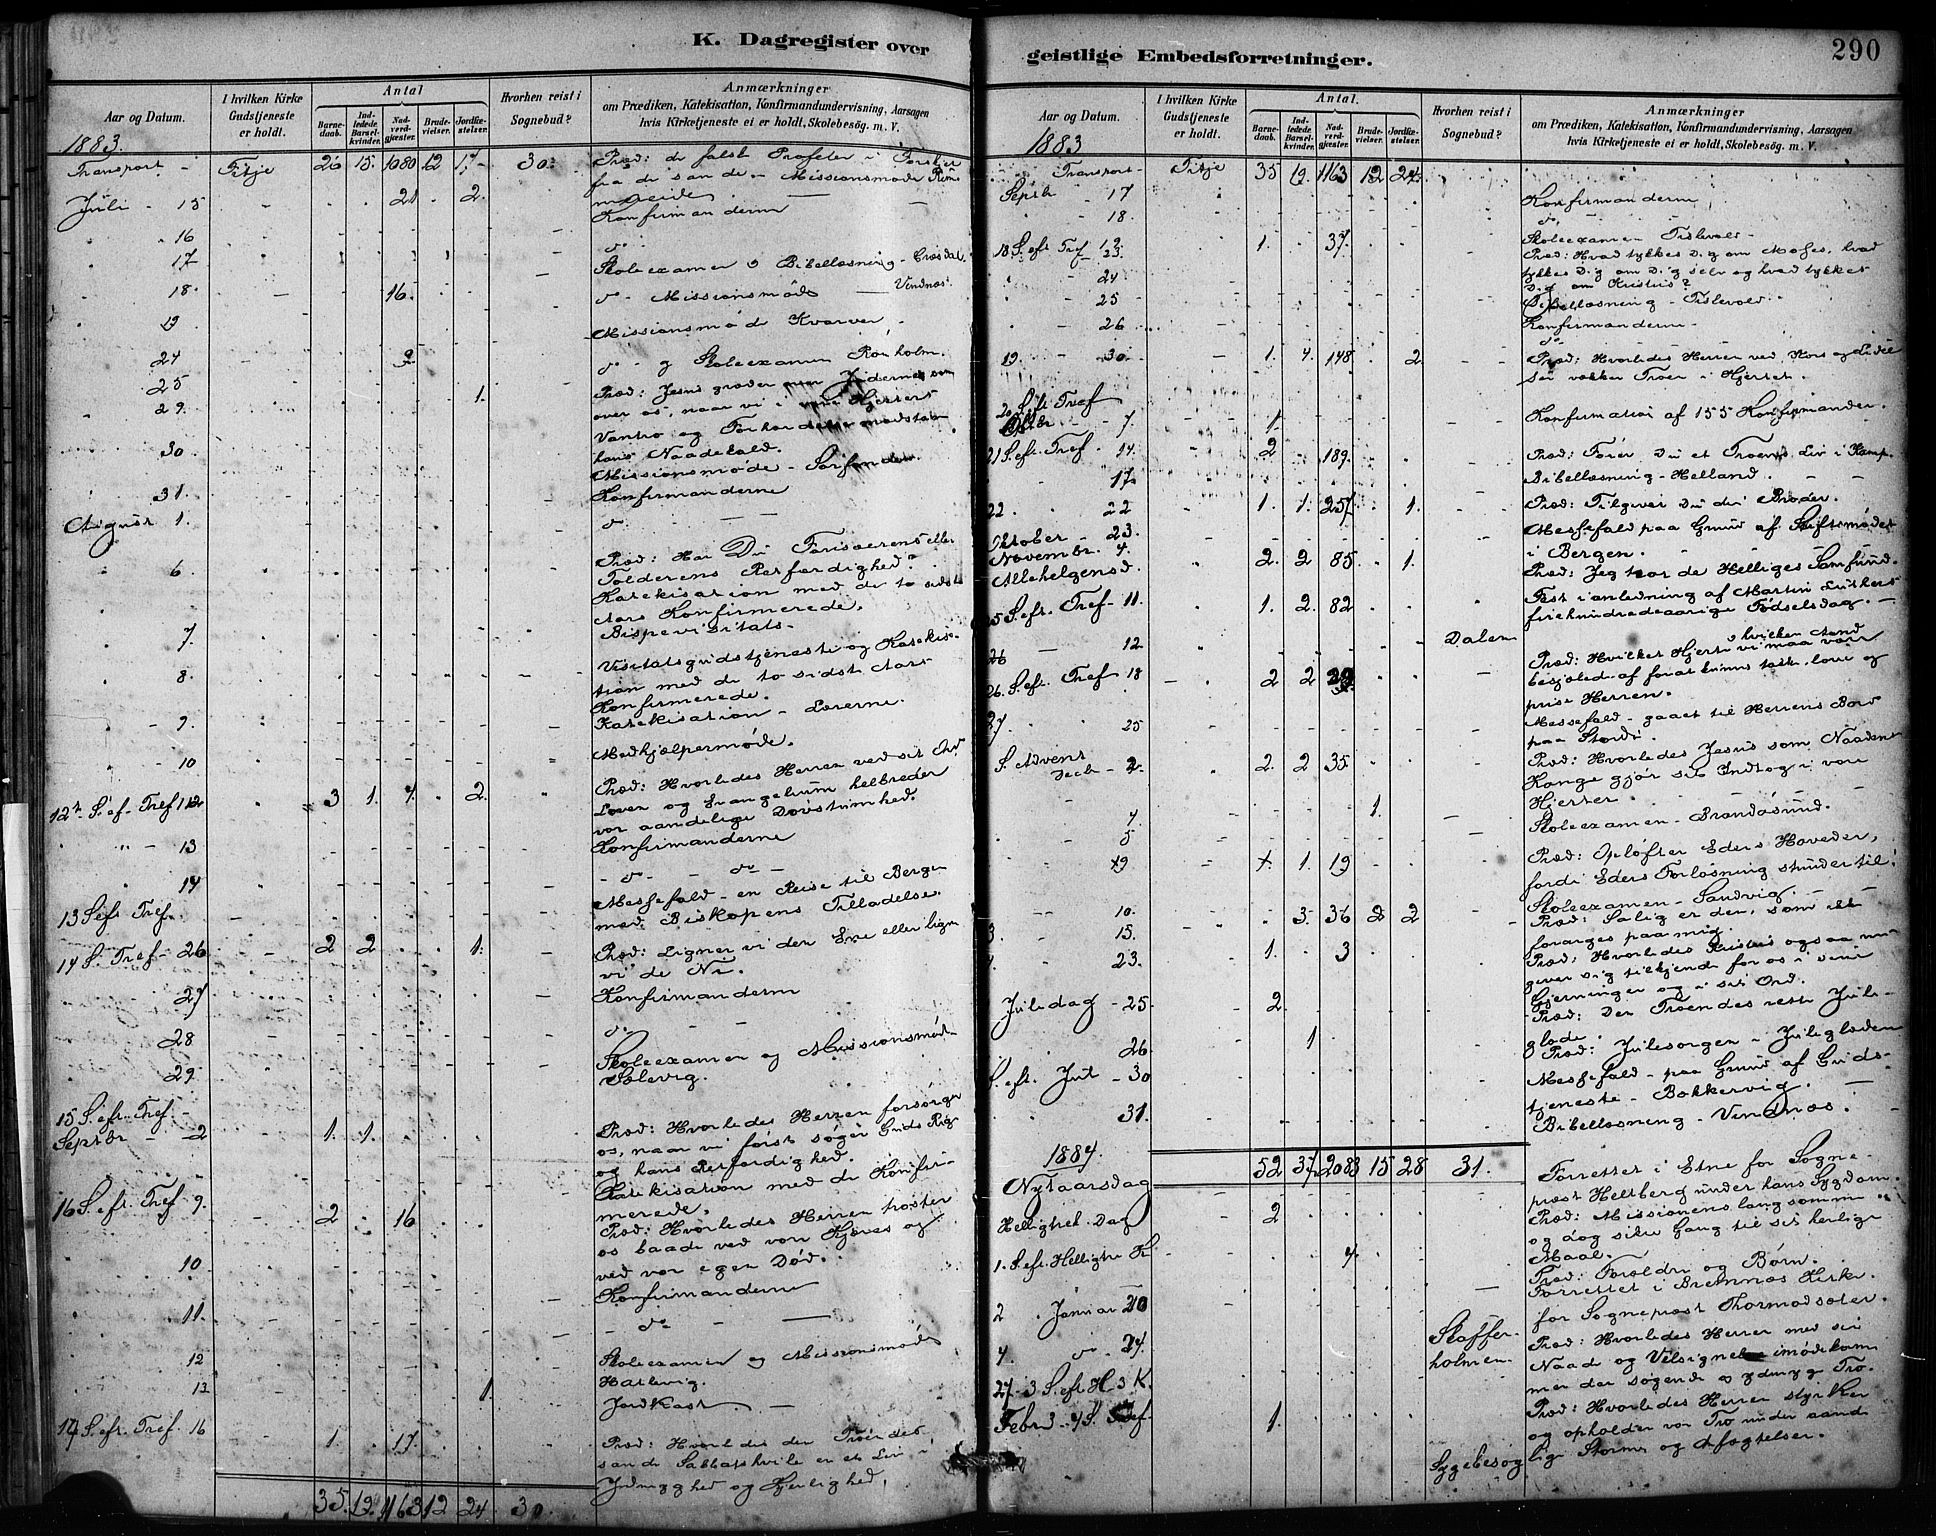 K. Dagregister over
geistlige Embedsforretninger.
290
Aar og Datum.
I hvilken Kirke Gudstjeneste er holdt.
Antal
Barne-daab.
Ind-ledede Barsel-kvinder.
Nad-verd-gjæster.
Brude-vielser.
Jordfæ-stelser.
Hvorhen reist i Sognebud?
Anmærkninger
om Prædiken, Katekisation, Konfirmandundervisning, Aarsagen
hvis Kirketjeneste ei er holdt, Skolebesög. m. V.
1883.
Transport - Fitje 26 15. 1080 12 17 30.
Præd: de falske Profeter i Forskjel
fra de sande. - Missionsmøde
Juli - 15 21 2.
Konfirmanderne
16 do
17 Skoleexamen & Bibellæsning -
18. 16. do - Missionsmøde - Vindnæs
19 Missionsmøde Kvarven -
24 2 do - og Skoleexamen Ronholm.
25 1. Præd: Jesus græder over Jøderne som
29. over os, naar vi i vore Hjerters
Vantro og
30 hans Naadekald.
Missionsmøde -
31. Konfirmanderne
August 1. do
Præd: Har Du Farisæerens eller
6 Tolderens Retfærdighed?
Katekisation med de to sidste
Aars Konfirmerede.
7. Bispevisitats -
Visitatsgudstjeneste og Katekisa-
8. tion med de to sidste Aars
Konfirmerede.
9. Katekisation - Lærerne.
10 Medhjælpermøde.
12te S. ef. Tref 12 3 1. 7. 2.
Præd: Hvorledes Herren ved sit Ord
Loven og Evangelium helbreder
vor aandelige Døvstumhed.
13 Konfirmanderne
14 - do - - do -
13 S. eft Tref. Messefald - en Reise til Bergen
med Biskopens Tilladelse.
14 S. Tref - 26 2 2 1.
Præd: Ligner vi den Ene eller ligner
vi de Ni.
27 Konfirmanderne
28 do
29 Skoleexamen og Missionsmøde
Solevig.
15 S. eft. Tref. -
Septbr - 2 1. 1.
Præd: Hvorledes Herren forsørger
os, naar vi først søger Guds Rige
og hans Retfærdighed.
Katekisation med de Konfir-
merede.
16 S. eft. Tref 9. 2 16
Præd: Hvorledes Herren trøster
os baade ved vore Kjæres og
ved vor egen Død.
10 Konfirmanderne
11. - do -
12 Skoleexamen og Missionsmøde
13 1. Jordkast. -
17 S. eft. Tref. 16 1. 17.
Præd: Hvorledes den Troendes
sande Sabbatshvile er et Liv i
Ydmyghed og Kjærlighed.
35. 19. 1163 12 24 30.
Aar og Datum.
I hvilken Kirke Gudstjeneste er holdt.
Antal.
Barne-daab.
Ind-ledede Barsel-kvinder.
Nad-verd-gjæster.
Brude-vielser.
Jordfæ-stelser.
Hvorhen reist i Sognebud?
Anmærkninger
om Prædiken, Katekisation, Konfirmandundervisning, Aarsagen
hvis Kirketjeneste ei er holdt, Skolebesög. m. V.
1883
Transport - Fitje 35 19. 1163 12 24.
Septbr - 17 Konfirmanderne
18. do
Skoleexamen Tislevold -
18 S. eft Tref 23. 1. 37.
Præd: Hvad tykkes Dig om Moses, hvad
tykkes Dig om Dig selv og hvad tykkes
24 Dig om Kristus?
25 Bibellæsning - Tislevold.
26 Konfirmanderne -
19. - 30. 1. 4. 148. 2
Præd: Hvorledes Herren ved Kors og Lidel
ser vækker Troen i Hjertet.
20 S. eft Tref
Oktbr - 7. 1.
Konfirmation af 155 Konfirmander.
21 S. eft. Tref. 14. 2 189.
Præd: Fører Du et Troens Liv i Kamp.
17. Bibellæsning - Helland.
22. 22 1. 1. 257. 1.
Præd: Tilgiver Du din Broder.
Oktober - 23. Messefald paa Grund af Stiftsmødet
i Bergen.
Novembr. 4.
Allehelgensd. 2. 2 85. 1.
Præd: Jeg tror de Helliges Samfund.
25 S. eft. Tref - 11. 1. 2. 82
Fest i anledning af Martin Luthers
firehundredeaarige Fødselsdag. -
12. Dalem
26 S. eft. Tref 18 2 2 29
Præd: Hvilket Hjerte, hvilken Aand
vi maa være
besjælede af for at kunne takke, love og
prise Herren.
27. 25 Messefald - gaaet til Herrens Bord
paa Stord.
S. Advent
Decb - 2. 2. 2 35.
Præd: Hvorledes Jesus som Naadens
Konge gjør sit Indtog i vore
Hjerter.
4 1.
5 Skoleexamen - Brandasund.
9 1. 19
Præd: Opløfter Eders Hoveder,
fordi Eders Forløsning stunder til!
10. 3. 36 2 2
Skoleexamen - Sandvig. -
15. Præd: Salig er den, som ikke
forarges paa mig.
23. 1. 3
Præd: Hvorledes Kristus ogsaa nu
giver sig tilkjende for os i sine
Gjerninger og i sit Ord.
Juledag - 25 2
Præd: Den Troendes rette Jule-
glæde.
26 1
Præd: Julesorgen i Juleglæden
S. eft. Jul - 30 Messefald - paa Grund af Guds-
tjeneste - Bakkervig. -
31. Bibellæsning - Vindnæs.
52 37. 2083 15 28 31.
1884.
Nytaarsdag
Forrettet i Etne for Sogne-
præst Heltberg under hans Sygdom.
Helligtrek. Dag 2
Præd: Missionens langsomme
og dog sikre Gang til sit herlige
Maal.
1. S. eft. Helligtre K 4
Præd: Forældre og Børn.
2 Januar 20
Forrettet i Bremnæs Kirke
for Sognepræst Thormodsæter.
4. do - 24. Skaffer-
holmen
27. 3 S. eft H 3 K.
Præd: Hvorledes Herren med sin
Naade og Velsignelse imødekom
mer den søgende og ydmyge Tro
Febr 3 - 4 S. 1
Præd: Hvorledes Herren styrker
og opholder vor Tro under aande
lige Storme og Anfægtelser.
Sygebesøg